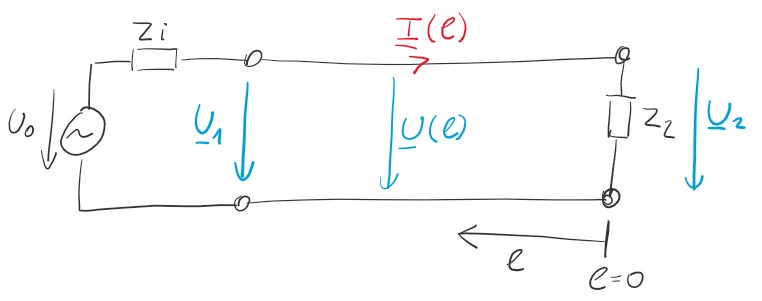 Zi
I(l)
U₀
~
U1
U(l)
Z2
U2
l
l=0